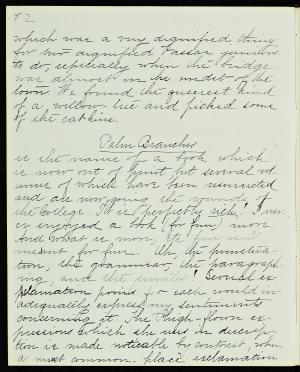 82
which was a very dignified thing
for two dignified Vassar juniors
to do, especially when the bridge
was almost in the midst of the
town. We found the queerest kind
of a willow-tree and picked some
of the catkins.
Palm Branches
is the name of a book which
is now out of print but several vol
umes of which have been resurrected
and are now going the rounds of
the College. It is perfectly rich. I nev-
er enjoyed a book (for fun) more.
And what is more, it
meant for fun. Oh, the punctua-
tion, the grammar, the paragraph-
ing and the similes! Several ex-
clamation points for each would in-
adequately express my sentiments
concerning it. The high-flown ex-
pressions which she uses in descrip-
tion is made noticeable by contrast, when
a most common-place exclamation